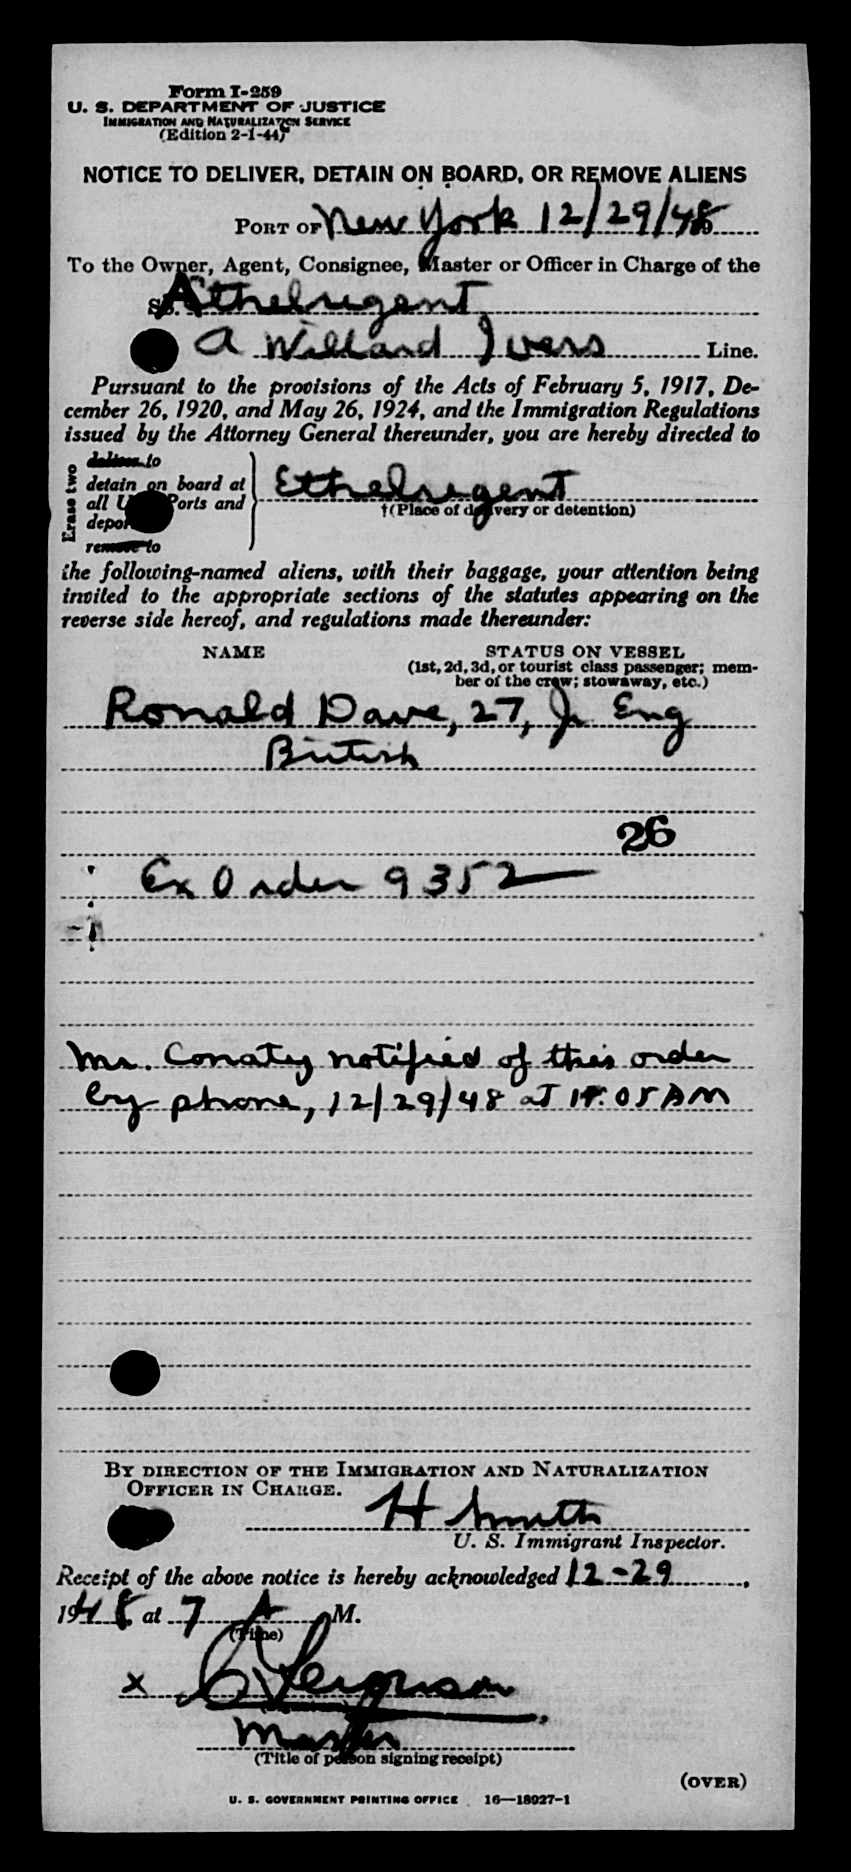 Form I-259
U. S. DEPARTMENT OF JUSTICE
IMMIGRATION AND NATURALIZATION SERVICE
(Edition 2-1-44)
NOTICE TO DELIVER, DETAIN ON BOARD, OR REMOVE ALIENS
PORT OF New York 12/29/48
To the Owner, Agent, Consignee, Master or Officer in Charge of the
SS. Athelregent
A Willard Ivers Line.
Pursuant to the provisions of the Acts of February 5, 1917, De-
cember 26, 1920, and May 26, 1924, and the Immigration Regulations
issued by the Attorney General thereunder, you are hereby directed to
Erase two
deliver to
detain on board at
all U Ports and
depor
remove to
Ethelregent
†(Place of delivery or detention)
the following-named aliens, with their baggage, your attention being
invited to the appropriate sections of the statutes appearing on the
reverse side hereof, and regulations made thereunder:
NAME STATUS ON VESSEL
(1st, 2d, 3d, or tourist class passenger; mem-
ber of the crew; stowaway, etc.)
Ronald Dave, 27, Jr Eng
British
26
Ex Order 9352
Mr. Conaty notified of this order
by phone, 12/29/48 at 05 AM
BY DIRECTION OF THE IMMIGRATION AND NATURALIZATION
OFFICER IN CHARGE.
H Smith
U. S. Immigrant Inspector.
Receipt of the above notice is hereby acknowledged 12-29,
1948 at 7 A M.
(Time)
x Ferguson
Master
(Title of person signing receipt)
(OVER)
U. S. GOVERNMENT PRINTING OFFICE 16—18927-1